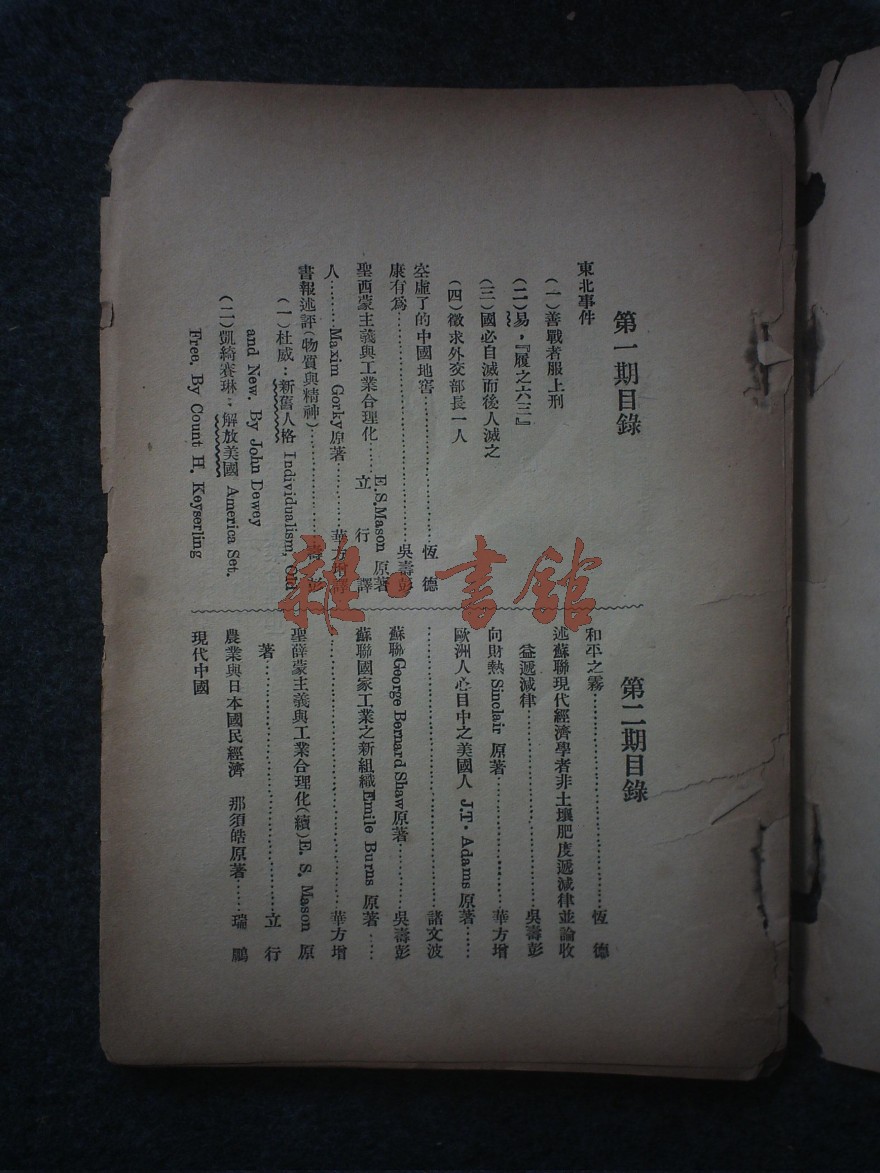 第一期目錄
東北事件
(一)善戰者服上刑
(二)易，『履之六三』
(三)國必自滅而後人滅之
(四)徵求外交部長一人
空虛了的中國地窖………………恆　德
康有爲………………吳壽彭
聖西蒙主義與工業合理化……E.S.Mason 原著
立　行　譯
人………Maxim Gorky原著………華方增譯
書報述評(物質與精神)………壽　彭
(一)杜威：新舊人格 Individualism, Old
and New. By John Dewey
(二)凱綺賽琳：解放美國 America Set.
Free. By Count H. Keyserling
第二期目錄
和平之霧………………恆　德
述蘇聯現代經濟學者非土壤肥度遞減律並論收
益遞減律………………吳壽彭
向財熱 Sinclair 原著………………華方增
歐洲人心目中之美國人 J.T. Adams 原著……
………………諸文波
蘇聯George Bernard Shaw原著………吳壽彭
蘇聯國家工業之新組織Emile Burns 原著……
………………華方增
聖薛蒙主義與工業合理化(續)E. S. Mason 原
著………………立　行
農業與日本國民經濟 那須皓原著……瑞　鵬
現代中國
雜·書館